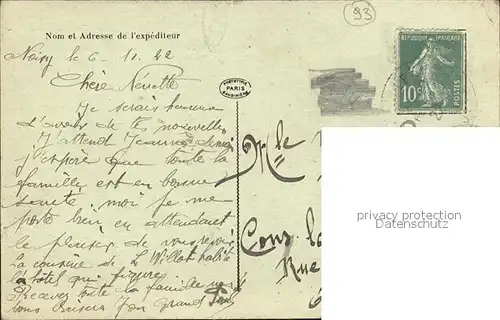 Nom et Adresse de l'expéditeur
93
REPUBLIQUE FRANÇAISE
10c
POSTES
PARIS
Noisy le 6. 11. 22
Chère Nénette
Je serais heureux
d'avoir de tes nouvelles
J'attend Jeanne demain
j'espère que toute la
famille est en bonne
santé moi je me
porte bien en attendant
le plaisir de vous revoir
la cousine de L. Willot habite
l'hôtel qui figure
Recevez toute la famille mes
bons baisers Ton grand
Mlle
Cons
Rue
privacy protection
Datenschutz